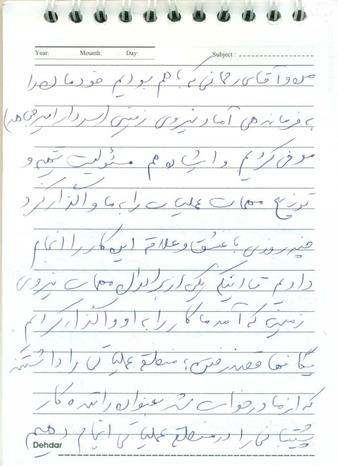 Year: Mounth: Day: Subject:
من و آقای رحمانی که با هم بودیم خودمان را
به فرماندهی آماد نیروی زمینی (سردار امیرجی‌ها)
معرفی کردیم و ایشان هم مسئولیت تهیه و
توزیع مهمات عملیات را به ما واگذار کرد
چند روزی با عشق و علاقه این کار را انجام
دادیم تا اینکه یکی از پرسنل مهمات نیروی
زمینی که آمد ما کار را به او واگذار کردیم
یگانها قصد رفتن به منطقه عملیاتی را داشتند
که از ما درخواست شد بعنوان راننده کار
پشتیبانی را در منطقه عملیاتی انجام دهیم
Dehdar